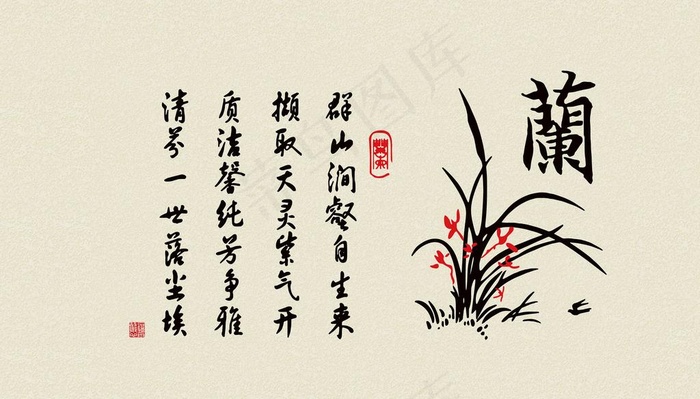 蘭
群山涧壑自生来
撷取天灵紫气开
质洁馨纯芳争雅
清芬一世落尘埃